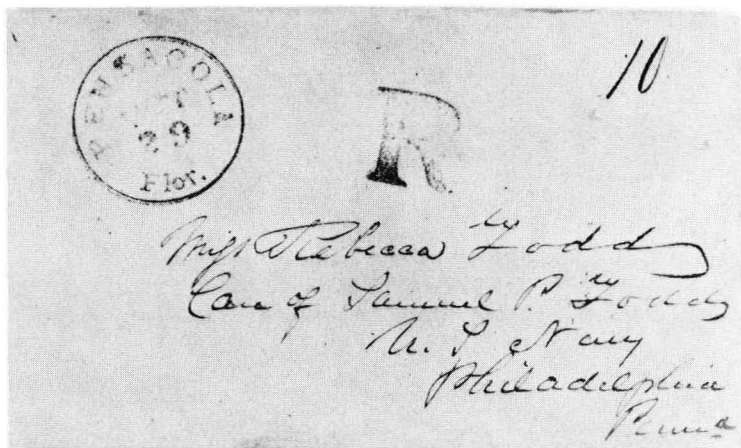 PENSACOLA
29
Flor.
10
R
Miss Rebecca Todd
Care of Samuel P. Todd
U. S. Navy
Philadelphia
Penna